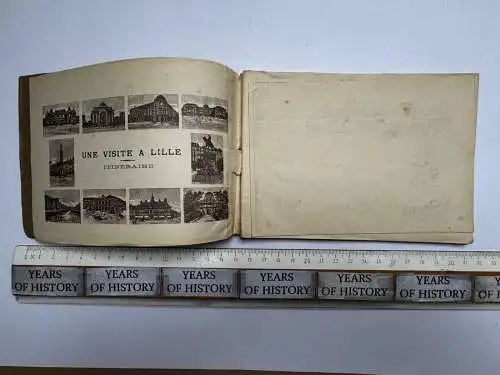 UNE VISITE A LILLE
ITINERAIRE
YEARS OF HISTORY YEARS OF HISTORY YEARS OF HISTORY YEARS OF HISTORY YEARS OF HISTORY YEARS OF HISTORY YEARS OF HISTORY